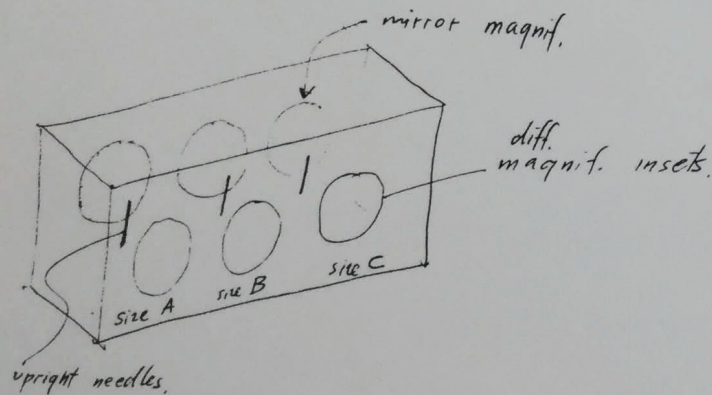 mirror magnif.
diff.
magnif. insets.
size A
size B
size C
upright needles.